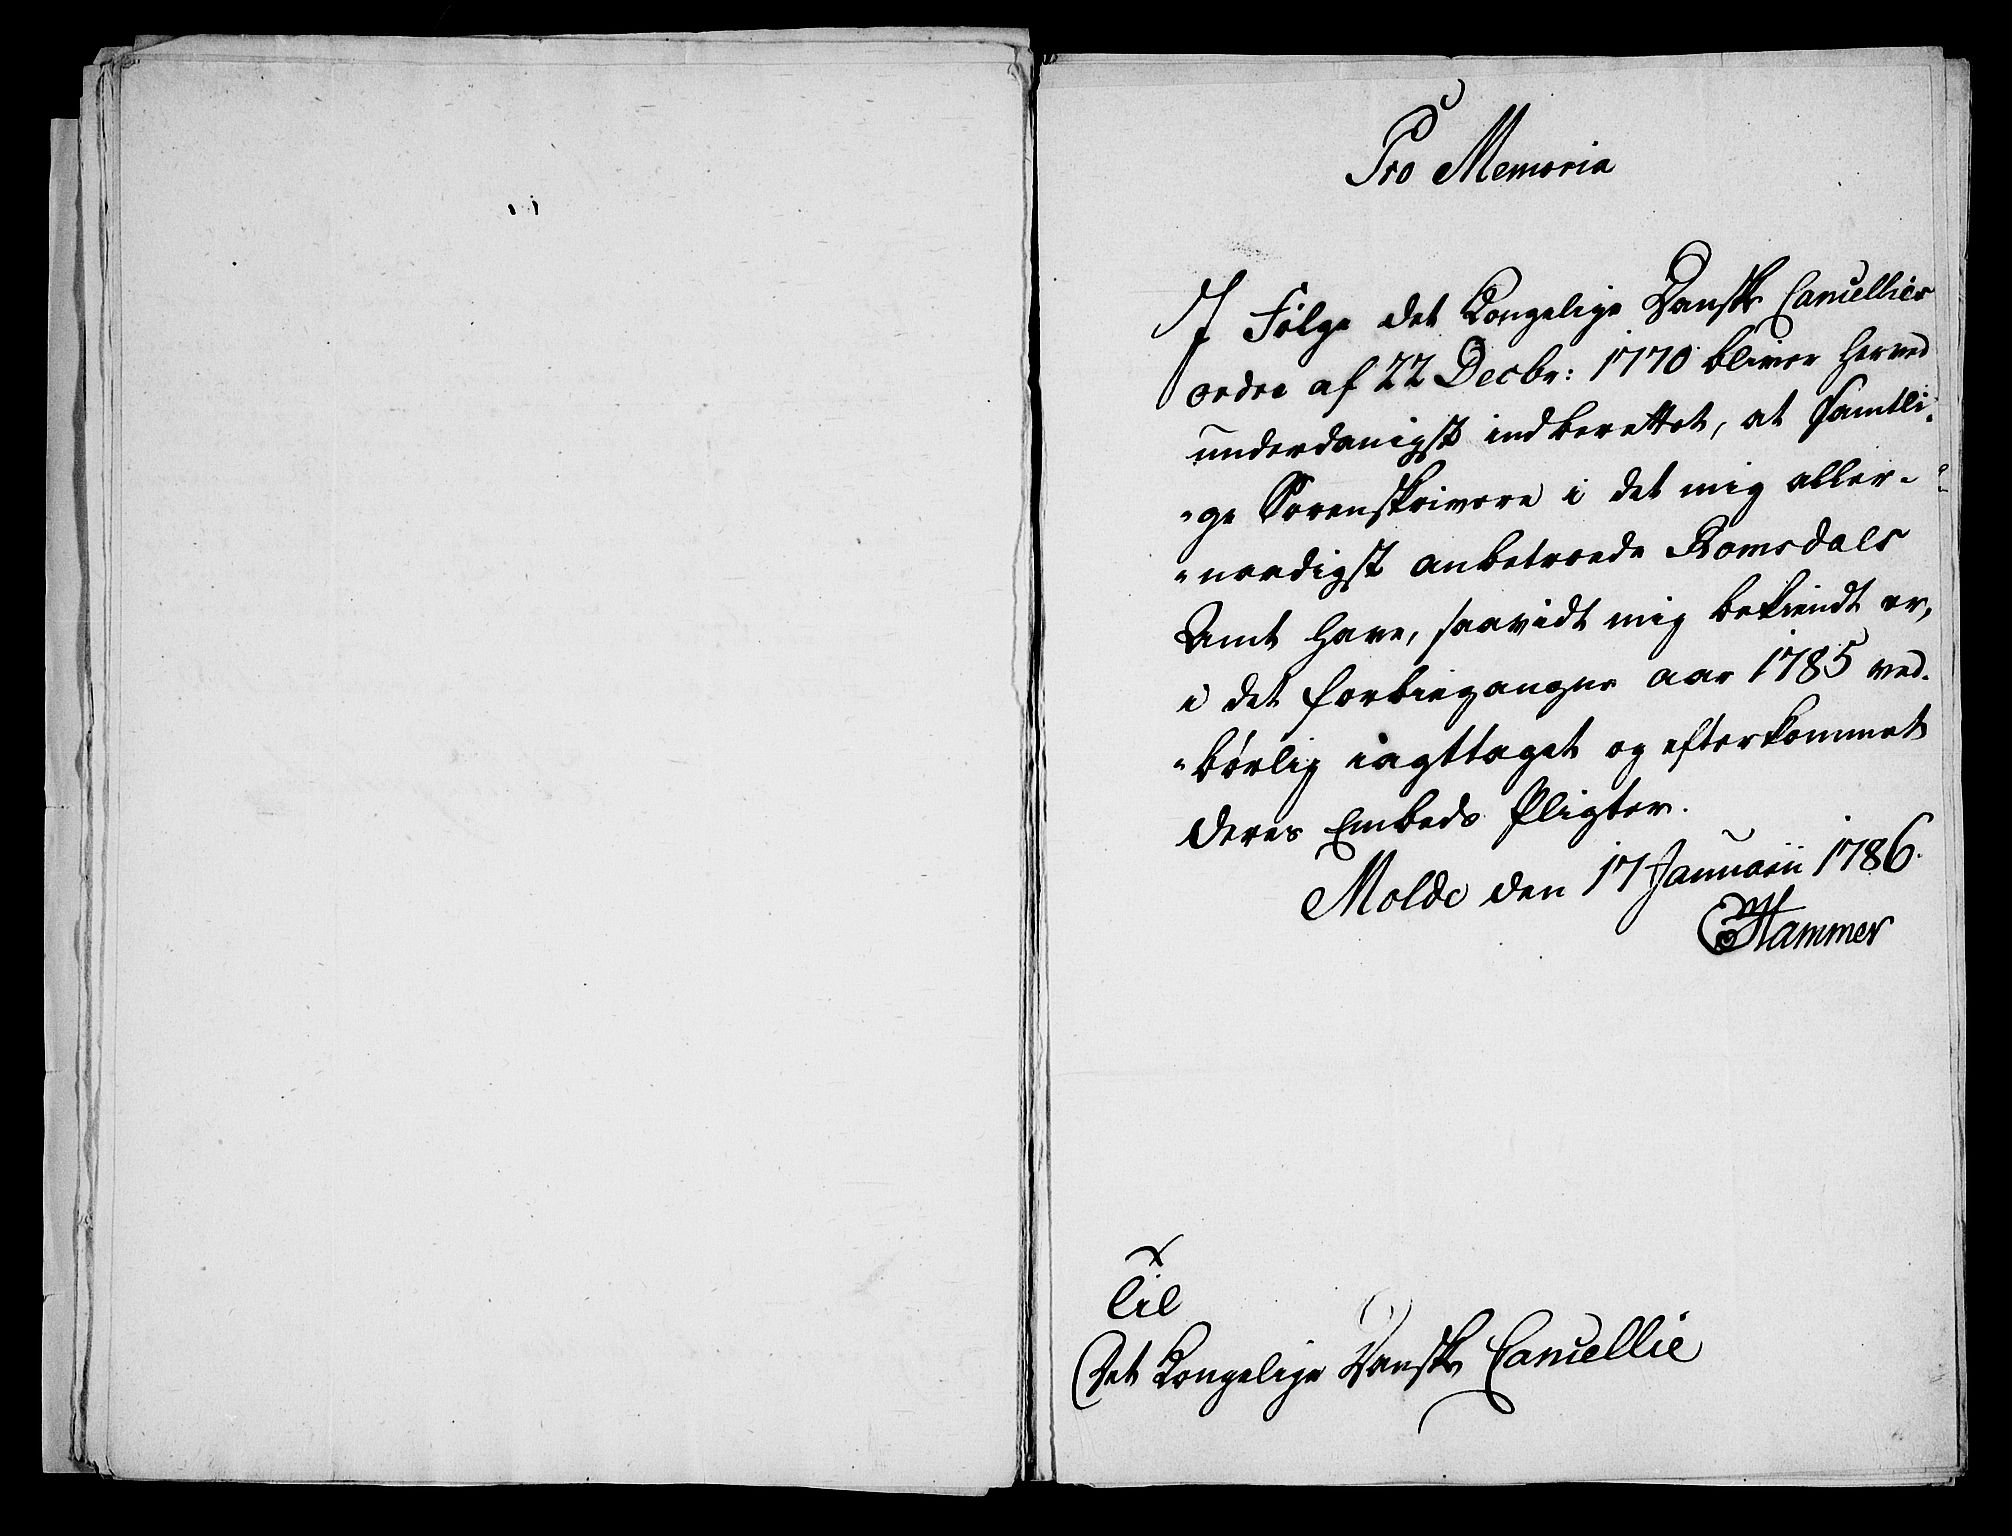 Pro Memoria
I Følge det Kongelige Danske Cancellies
ordre af 22 Decbr: 1770 bliver herved
underdanigst indberettet, at samtli-
-ge Sorenskrivere i det mig aller-
-naadigst anbetroede Romsdals
Amt have, saavidt mig bekiendt er,
i det forbiegangne aar 1785 ved-
-børlig iagttaget og efterkommet
deres Embeds Pligter.
Molde den 17 Januarii 1786.
Hammer
Til
Det Kongelige Danske Cancellie